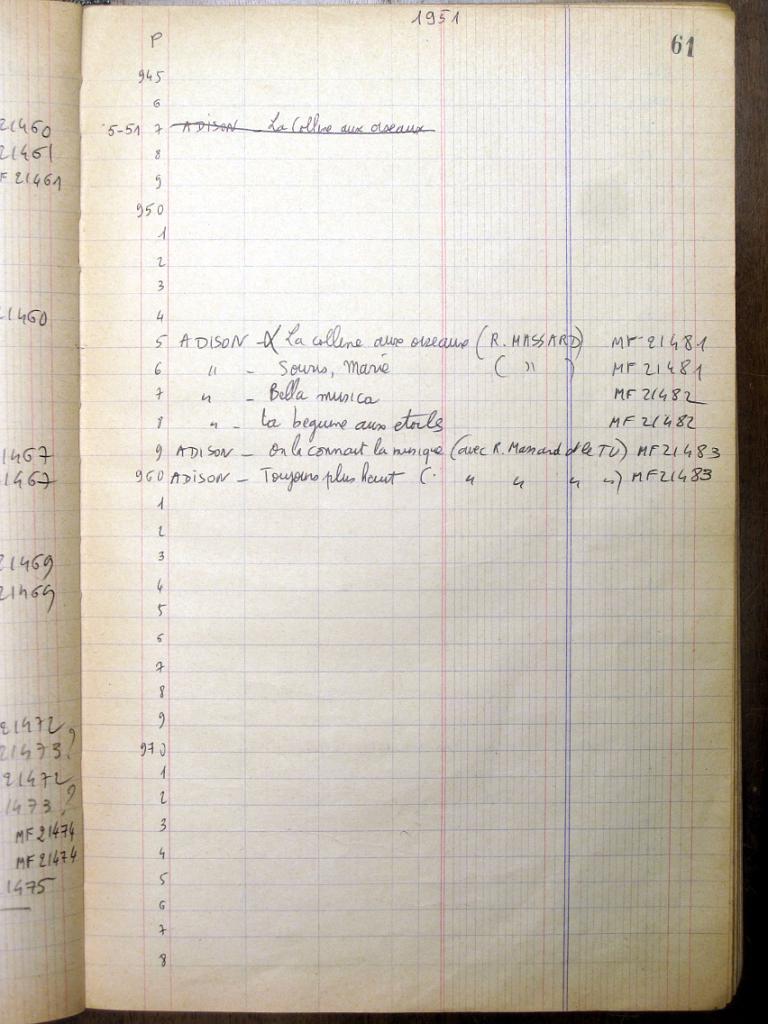 1951
P
61
945
6
5-51 7 ADISON _ La Colline aux oiseaux
8
9
950
1
2
3
4
5 ADISON - La colline aux oiseaux (R. MASSARD) MF 21481
6 " - Souris, Marie ( " ) MF 21481
7 " - Bella musica MF 21482
8 " - La beguine aux etoiles MF 21482
9 ADISON - on le connait la musique (avec R. Massard et le TV) MF 21483
960 ADISON - Toujours plus haut ( " " " ") MF 21483
1
2
3
4
5
6
7
8
9
970
1
2
3
4
5
6
7
8
21460
21461
F 21461
21460
1467
1467
21469
21469
21472 ?
21473
21472 ?
1473
MF 21474
MF 21474
1475